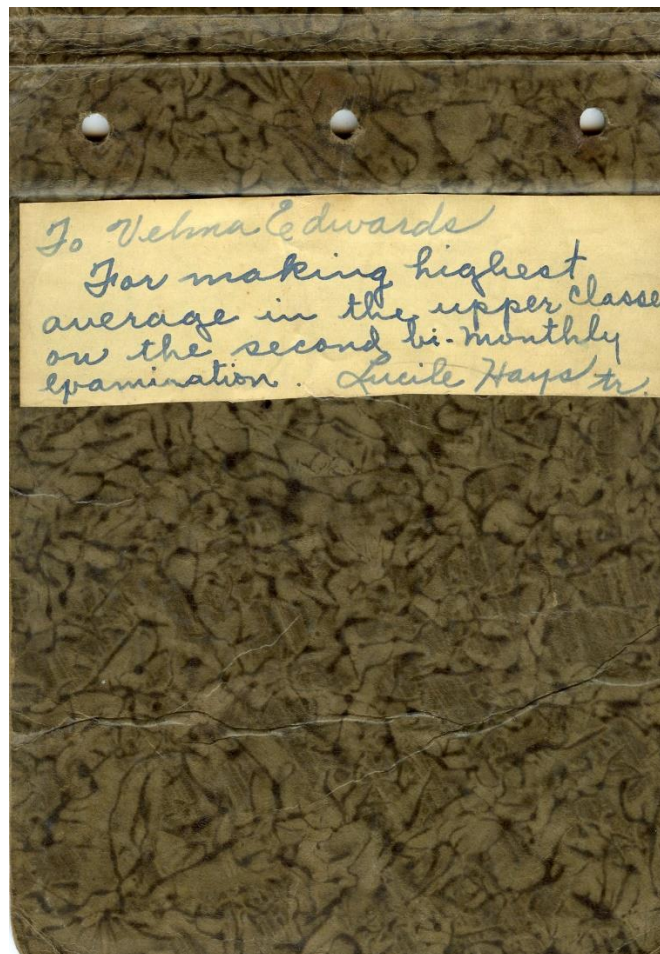 To Velma Edwards
For making highest
average in the upper classe
on the second bi-monthly
examination. Lucile Hays tr.